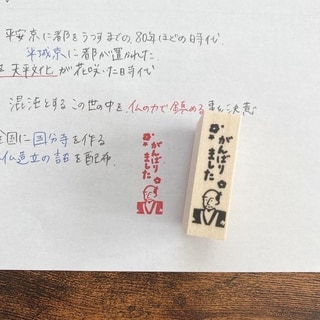 平安京に都をうつすまでの、80年ほどの時代
平城京に都が置かれた
天平文化が花咲いた時代
混沌とするこの世の中を、仏の力で鎮める事を決意
全国に国分寺を作る
大仏造立の詔を配布
がんばり
ました
がんばり
ました